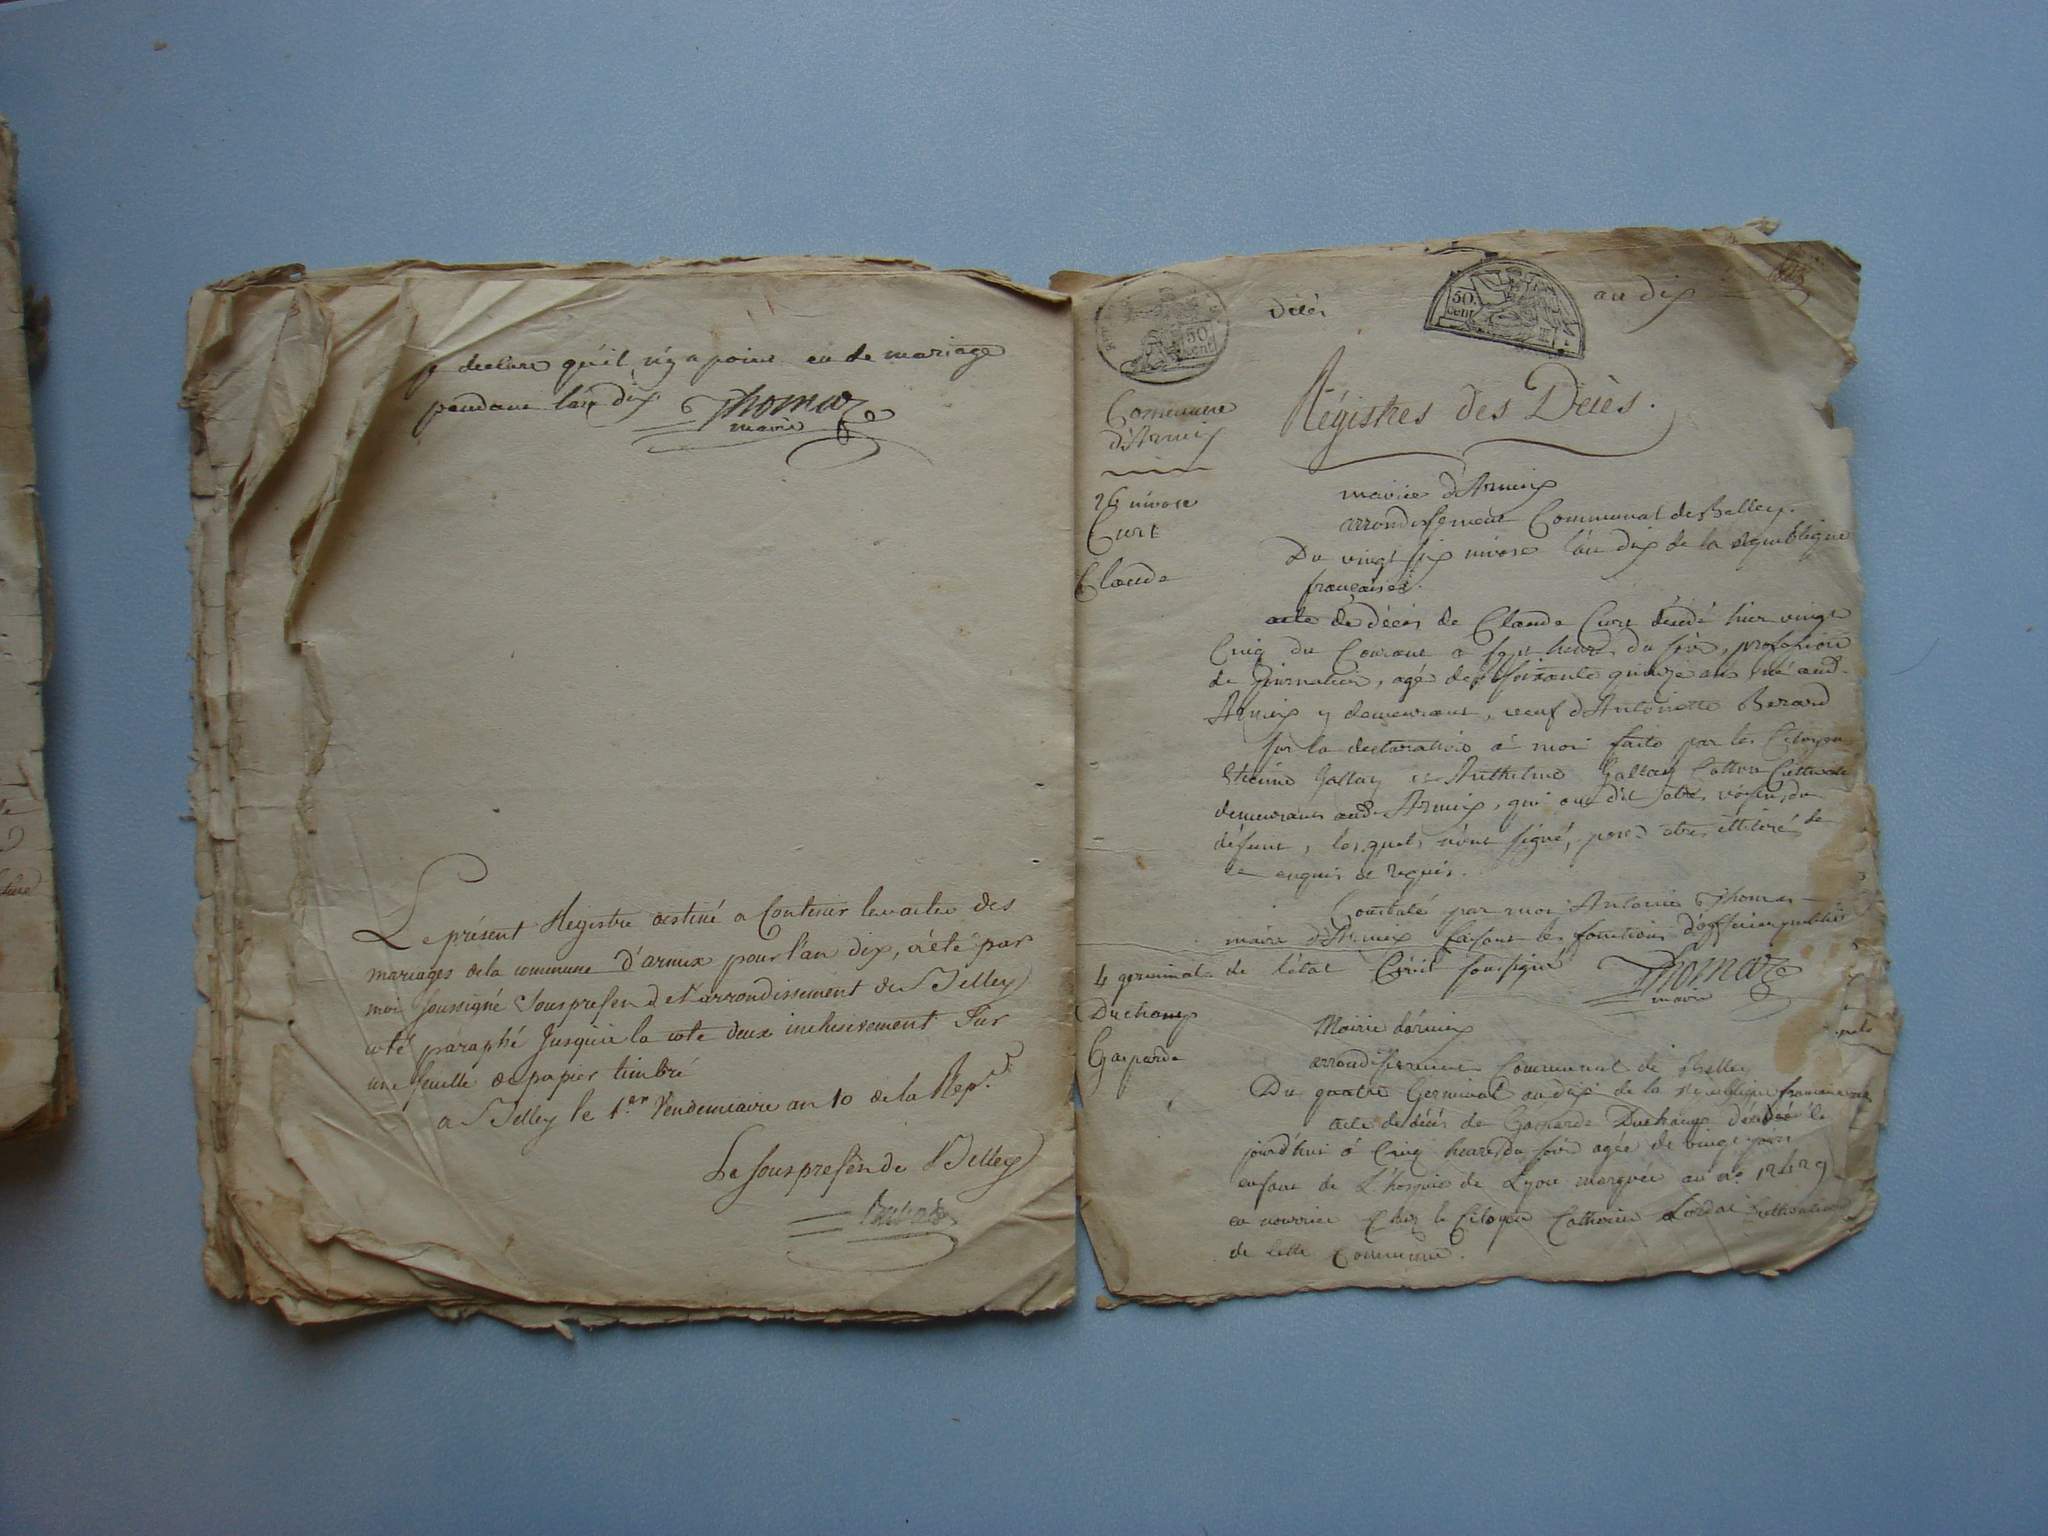 je declare qu'il n'y a point eu de mariage
pendant l'an dix Thomas
maire
Le présent Registre destiné a Contenir les actes des
mariages de la commune d'armix pour l'an dix, a été par
moi soussigné Sousprefet de l'arrondissement de Belley
coté paraphé Jusqu'à la cote deux inclusivement sur
une feuille de papier timbré
a Belley le 1.er Vendemiaire an 10 de la Rep.
Le sousprefet de Belley
50
cent
Décès
50
cent
an dix
Commune
d'Armix
Régistres des Décès.
26 nivose
Curt
Claude
mairie d'Armix
arrondissement Communal de Belley.
Du vingt six nivose l'an dix de la république
française.
acte de décès de Claude Curt décédé hier vingt
Cinq du Courant a sept heures du soir, profession
de Journalier, agé de soixante quinze ans né aud.
Armix y demeurant, veuf d'Antoinette Berard
sur la declaration à moi faite par les Citoyens
Etienne et Anthelme
demeurants aud. Armix, qui ont dit être voisins du
défunt, lesquels n'ont signé, pour être illiterés de
ce enquis et requis.
Constaté par moi Antoine Thomas
maire d'Armix faisant les fonctions d'officier public
de l'état Civil soussigné Thomas
maire
4 germinal
Duchamp
Gasparde
Mairie d'armix
arrondissement Communal de Belley
Du quatre Germinal an dix de la république française
acte de décès de Gasparde Duchamp décédée le
jourd'hui à Cinq heures du soir agée de vingt jours
enfant de L'hospice de Lyon marquée au n.o
en nourrice Chez la Citoyenne Catherine
de cette Commune.